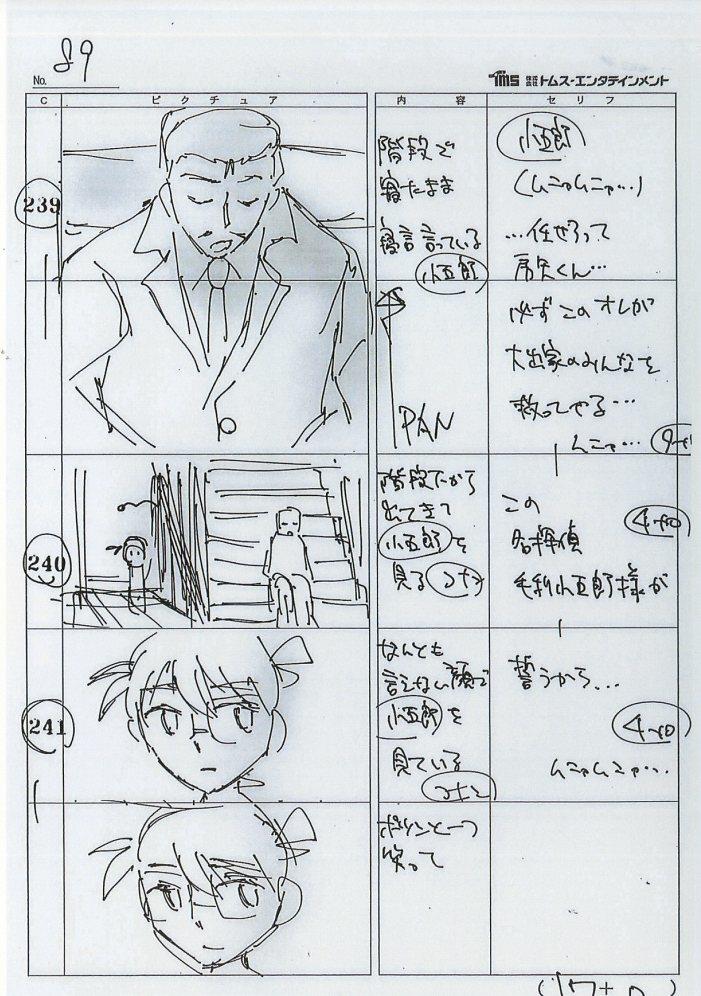 No. 89
TMS 株式会社 トムス・エンタテインメント
C ピクチュア 内容 セリフ
239
階段で
寝たまま
寝言言っている
小五郎
PAN
小五郎
(ムニャムニャ…)
…任せろって
房矢くん…
必ずこのオレが
大出家のみんなを
救ってやる…
ムニャ…
240
階段下から
出てきて
小五郎を
見るコナン
この
名探偵
毛利小五郎様が
4+0
241
なんとも
言えない顔で
小五郎を
見ている
コナン
誓うから…
4+0
ムニャムニャ…
ポツンと一つ
笑って